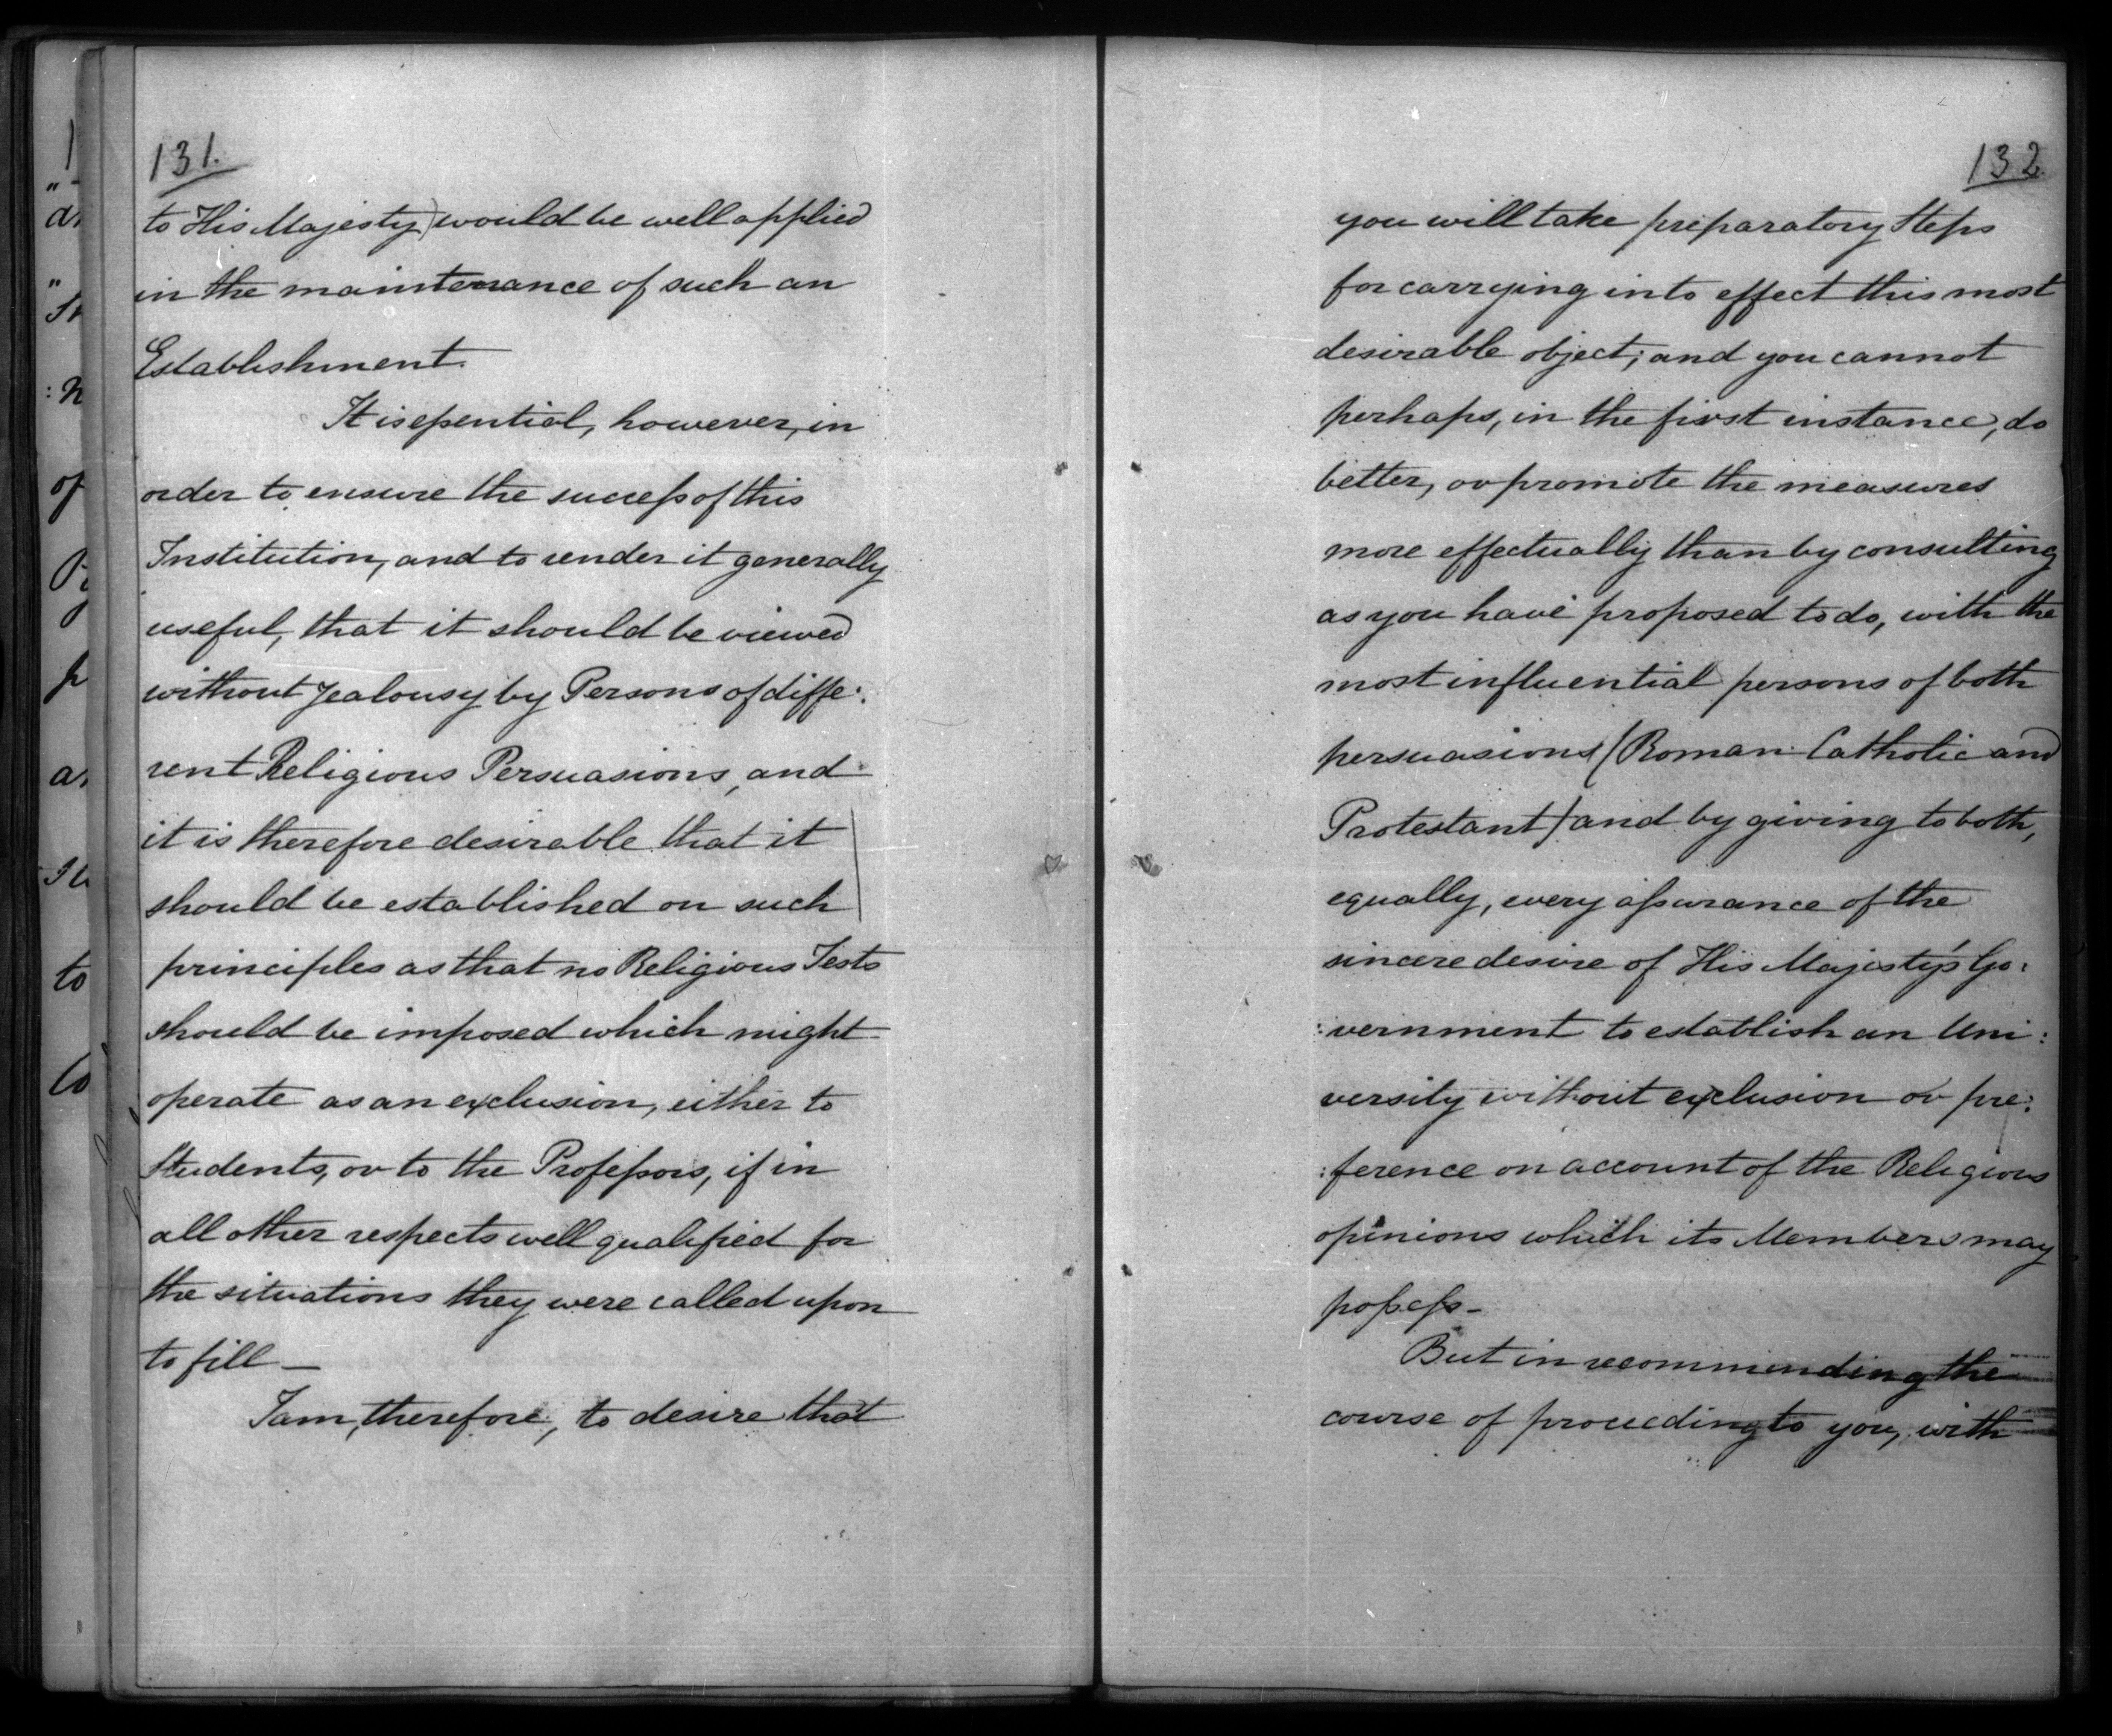 131.
to His Majesty) would be well applied
in the maintenance of such an
Establishment.
It is essential, however, in
order to ensure the success of this
Institution, and to render it generally
useful, that it should be viewed
without Jealousy by Persons of diffe:
rent Religious Persuasions, and
it is therefore desirable that it
should be established on such
principles as that no Religious Tests
should be imposed which might
operate as an exclusion, either to
Students, or to the Professors, if in
all other respects well qualified for
the situations they were called upon
to fill —
I am, therefore, to desire that
132
you will take preparatory Steps
for carrying into effect this most
desirable object; and you cannot
perhaps, in the first instance, do
better, or promote the measures
more effectually than by consulting
as you have proposed to do, with the
most influential persons of both
persuasions (Roman Catholic and
Protestant) and by giving to both,
equally, every assurance of the
sincere desire of His Majesty's Go:
:vernment to establish an Uni:
versity without exclusion or pre:
:ference on account of the Religious
opinions which its Members may
possess –
But in recommending the
course of proceeding to you, with